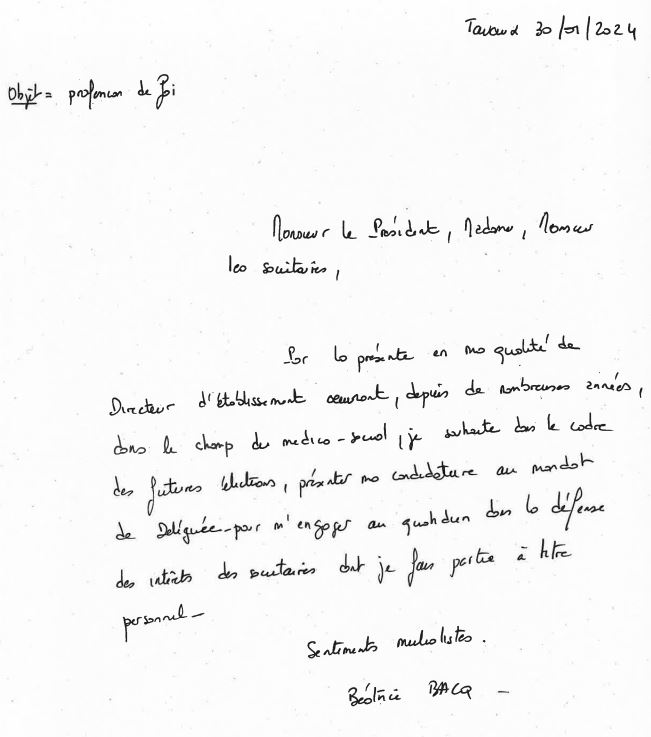 Tavaux 30/01/2024
Objet = profession de foi
Monsieur le Président, Madame, Monsieur
les sociétaires,
Par la présente en ma qualité de
Directeur d'établissement oeuvrant, depuis de nombreuses années,
dans le champ du medico-social, je souhaite dans le cadre
des futures élections, présenter ma candidature au mandat
de Déléguée - pour m'engager au quotidien dans la défense
des intérêts des sociétaires dont je fais partie à titre
personnel -
Sentiments mutualistes.
Béatrice BACQ -